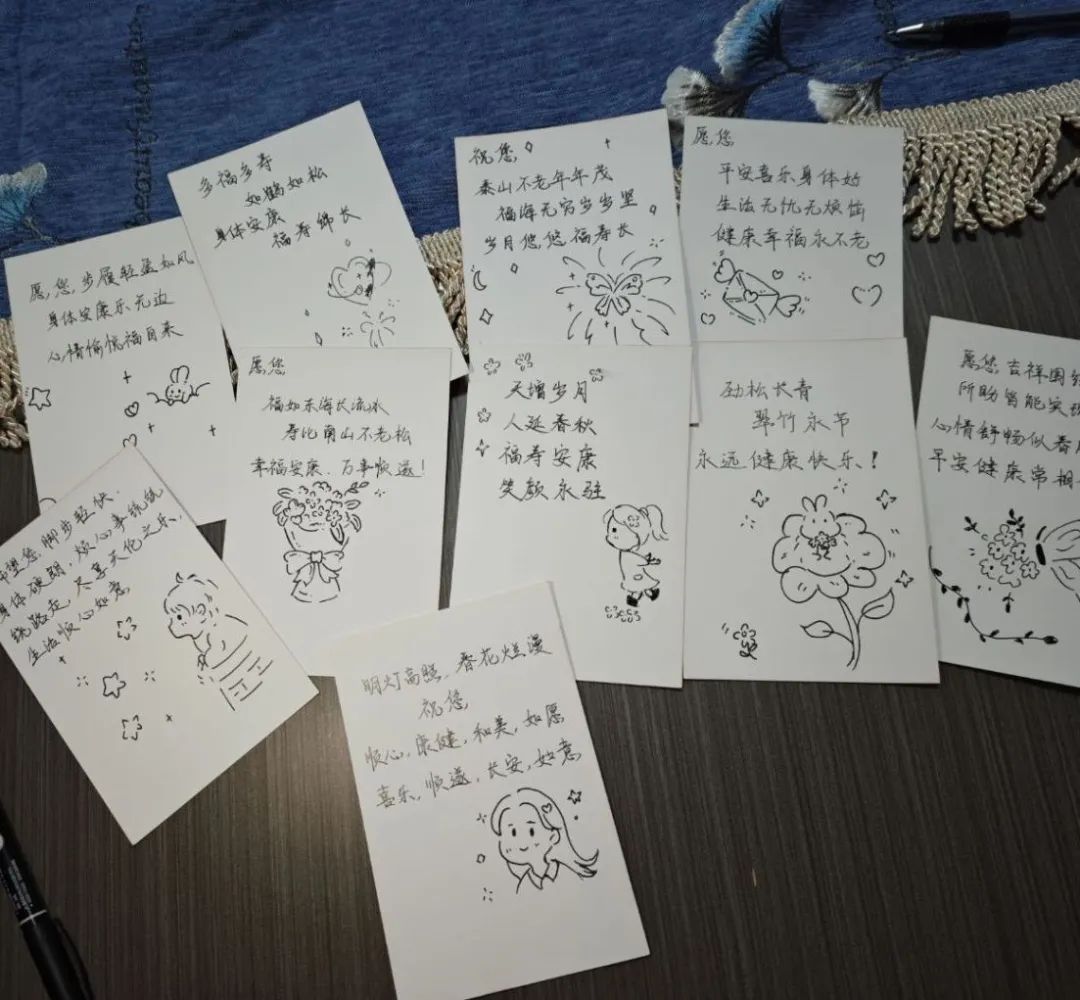 多福多寿
如鹤如松
身体安康
福寿绵长
祝您
泰山不老年年茂
福海无穷岁岁坚
岁月悠悠福寿长
愿您
平安喜乐身体好
生活无忧无烦恼
健康幸福永不老
愿您,步履轻盈如风
身体安康乐无边
心情愉悦福自来
愿您
福如东海长流水
寿比南山不老松
幸福安康、万事顺遂!
天增岁月
人延春秋
福寿安康
笑颜永驻
劲松长青
翠竹永节
永远健康快乐!
愿您吉祥围绕
所盼皆能实现
心情舒畅似春
平安健康常相
希望您,脚步轻快,
身体硬朗,烦心事统统
绕路走,尽享天伦之乐、
生活顺心如意
明灯高照、春花烂漫
祝您
顺心,康健,和美,如愿
喜乐,顺遂,长安,如意